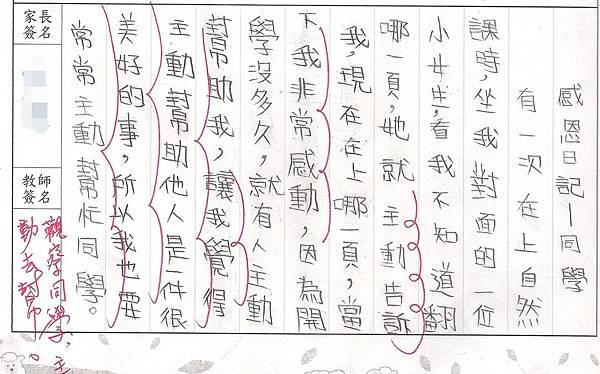 感恩日記—同學
有一次在上自然
課時，坐我對面的一位
小女生，看我不知道翻
哪一頁，她就主動告訴
我，現在在上哪一頁，當
下我非常感動，因為開
學沒多久，就有人主動
幫助我，讓我覺得
主動幫助他人是一件很
美好的事，所以我也要
常常主動幫忙同學。
家長簽名
教師簽名
觀察同學，主
動去幫忙。